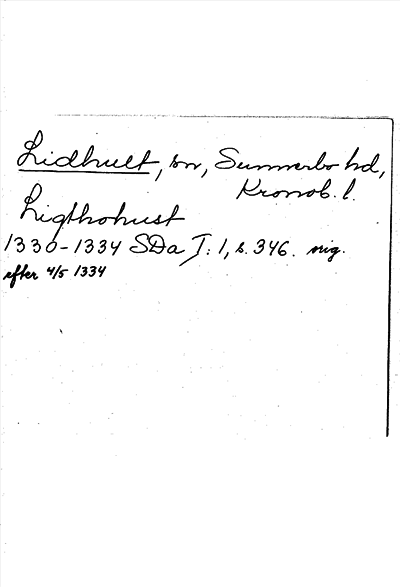 Lidhult, sn, Sunnerbo hd,
Kronob. l.
Ligthohust
1330-1334 SDa I: 1, s. 346. nig.
efter 4/5 1334